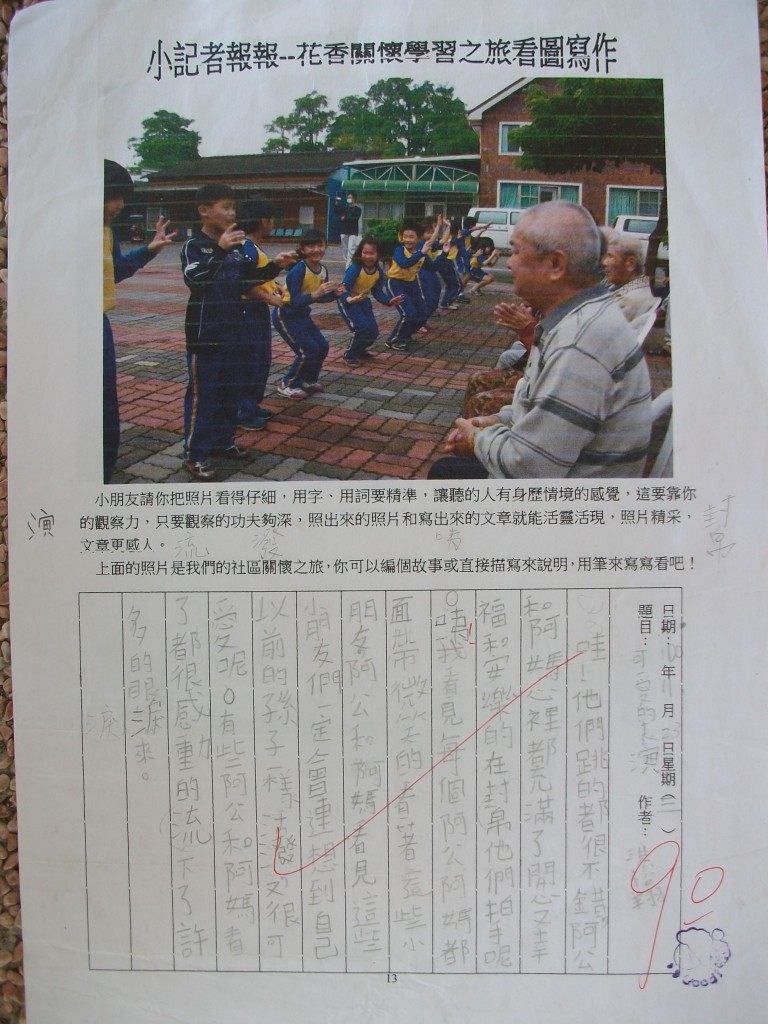 小記者報報--花香關懷學習之旅看圖寫作
小朋友請你把照片看得仔細，用字、用詞要精準，讓聽的人有身歷情境的感覺，這要靠你
的觀察力，只要觀察的功夫夠深，照出來的照片和寫出來的文章就能活靈活現，照片精采，
文章更感人。
上面的照片是我們的社區關懷之旅，你可以編個故事或直接描寫來說明，用筆來寫寫看吧！
演
流
潑
封
帛
日期：100年 月23日星期（三）
題目：可愛的表演 作者：
哇！他們跳的都很不錯阿公
和阿媽心裡都充滿了開心幸
福和安樂的在封帛他們拍手呢
。我看見每個阿公阿媽都
面帶微笑的看著這些小
朋友阿公和阿媽看見這些
小朋友們一定會連想到自己
以前的孫子一樣活潑又很可
愛呢。有些阿公和阿媽看
了都很感動的流下了許
多的眼淚來。
淚
90
GOOD
13